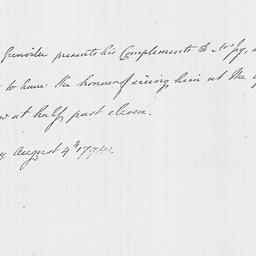 Grenville presents his Complements to Mr Jay, a
to have the honour of seeing him at the
w at half past eleven.
y August 4th 1794.